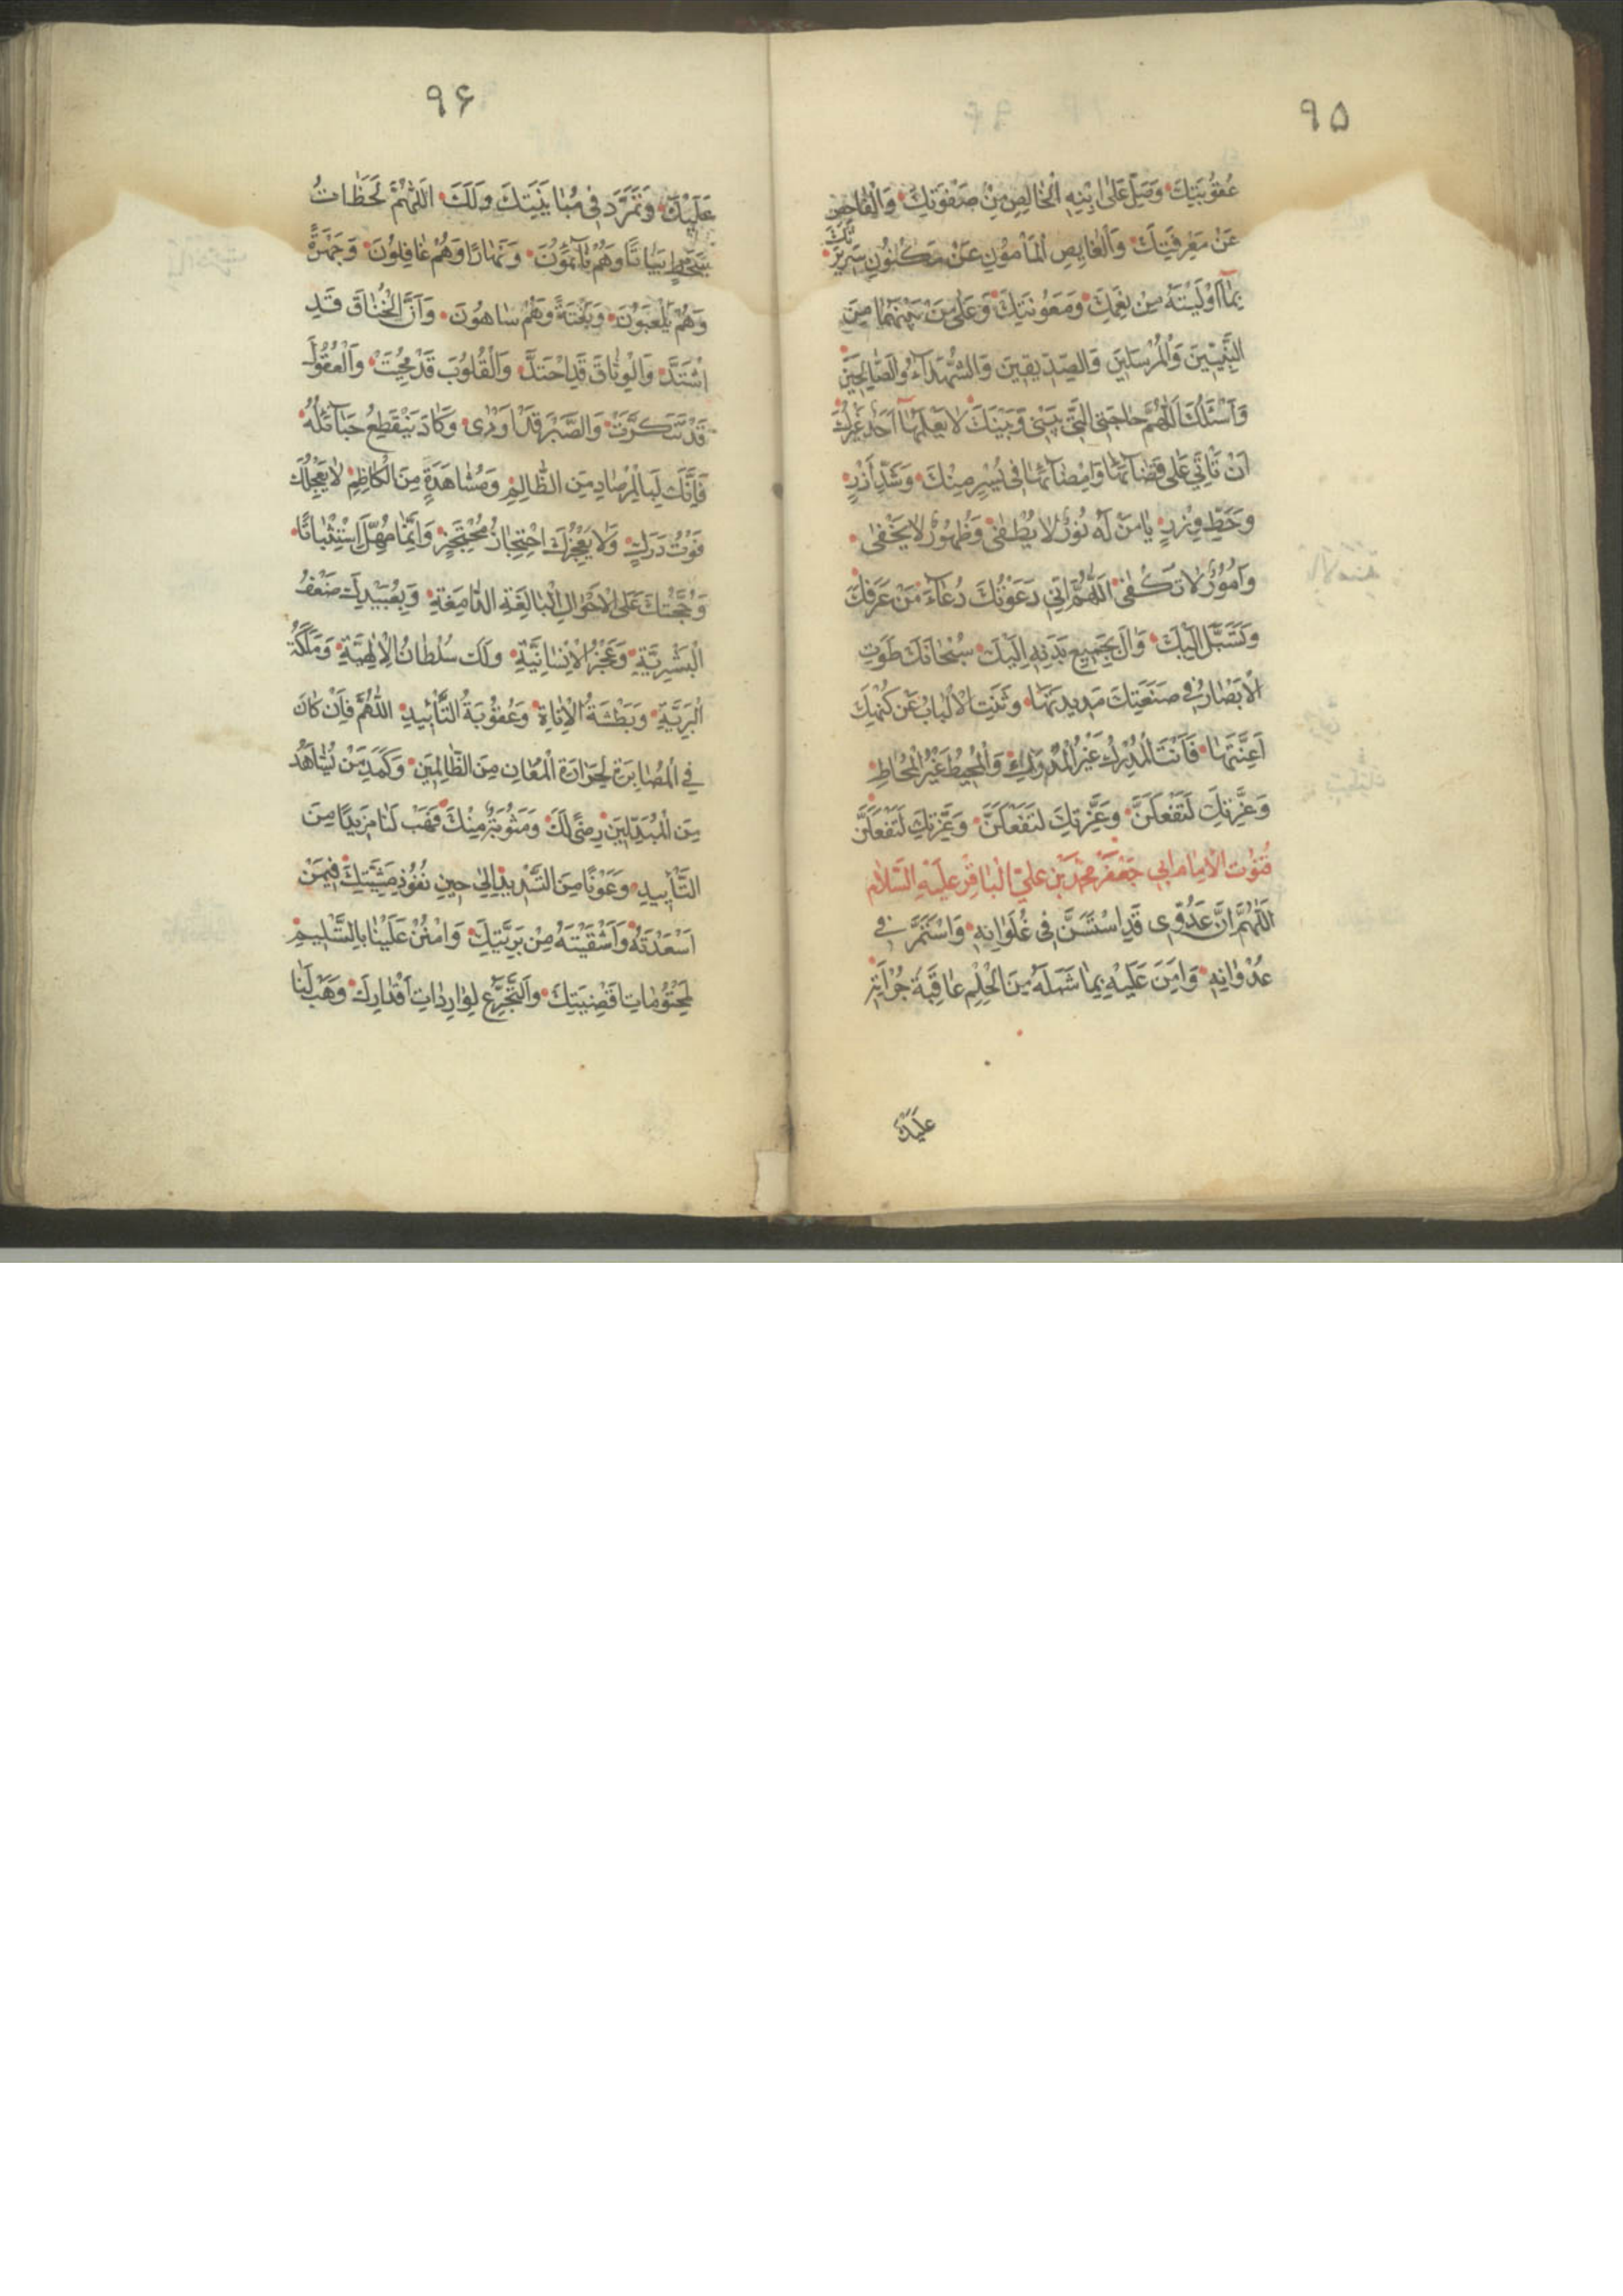 ٩۵
عُقُوبَتِكَ وَصَلِّ عَلَى ابْنِهِ الْخَالِصِ مِنْ صَفْوَتِكَ وَالْفَاحِصِ
عَنْ مَعْرِفَتِكَ وَالْغَايِصِ الْمَأْمُونِ عَنْ مَكْنُونِ سَرِيرَتِكَ
بِمَا أَوْلَيْتَهُ مِنْ نِعَمِكَ وَمَعُونَتِكَ وَعَلَى مَنْ بَيْنَهُمَا مِنَ
النَّبِيِّينَ وَالْمُرْسَلِينَ وَالصِّدِّيقِينَ وَالشُّهَدَاءِ وَالصَّالِحِينَ
وَأَسْئَلُكَ اللَّهُمَّ حَاجَتِيَ الَّتِي بَيْنِي وَبَيْنَكَ لَا يَعْلَمُهَا أَحَدٌ غَيْرُكَ
أَنْ تَأْتِيَ عَلَى قَضَائِهَا وَإِمْضَائِهَا فِي يُسْرٍ مِنْكَ وَشَدِّ أَزْرٍ
وَحَطِّ وِزْرٍ يَا مَنْ لَهُ نُورٌ لَا يُطْفَى وَظُهُورٌ لَا يَخْفَى
وَأُمُورٌ لَا تُكْفَى اللَّهُمَّ إِنِّي دَعَوْتُكَ دُعَاءَ مَنْ عَرَفَكَ
وَتَسَبَّلَ إِلَيْكَ وَآلَ بِجَمِيعِ بَدَنِهِ إِلَيْكَ سُبْحَانَكَ طَوَتِ
الْأَبْصَارُ فِي صَنْعَتِكَ مَدِيدَتَهَا وَثَنَتِ الْأَلْبَابُ عَنْ كُنْهِكَ
أَعِنَّتَهَا فَأَنْتَ الْمُدْرِكُ غَيْرُ الْمُدْرَكِ وَالْمُحِيطُ غَيْرُ الْمُحَاطِ
وَعِزَّتِكَ لَتَفْعَلَنَّ وَعِزَّتِكَ لَتَفْعَلَنَّ وَعِزَّتِكَ لَتَفْعَلَنَّ
قُنُوتُ الْإِمَامِ أَبِي جَعْفَرٍ مُحَمَّدِ بْنِ عَلِيٍّ الْبَاقِرِ عَلَيْهِ السَّلَامُ
اللَّهُمَّ إِنَّ عَدُوِّي قَدِ اسْتَسَنَّ فِي غُلَوَانِهِ وَاسْتَمَرَّ فِي
عُدْوَانِهِ وَأَمِنَ عَلَيْهِ بِمَا شَمَلَهُ مِنَ الْحِلْمِ عَاقِبَةَ جُرْأَتِهِ
عَلَيْكَ
٩۶
عَلَيْكَ وَتَمَرَّدَ فِي مُبَايَنَتِكَ وَلَكَ اللَّهُمَّ لَحَظَاتُ
سَخَطٍ بَيَاتًا وَهُمْ نَائِمُونَ وَنَهَارًا وَهُمْ غَافِلُونَ وَجَهْرَةً
وَهُمْ يَلْعَبُونَ وَبَغْتَةً وَهُمْ سَاهُونَ وَأَنَّ الْخُنَاقَ قَدِ
اشْتَدَّ وَالْوِثَاقَ قَدِ احْتَدَّ وَالْقُلُوبَ قَدْ مُحِيَتْ وَالْعُقُولَ
قَدْ تَنَكَّرَتْ وَالصَّبْرَ قَدْ أَوْدَى وَكَادَ يَنْقَطِعُ حَبَائِلُهُ
فَإِنَّكَ لَبِالْمِرْصَادِ مِنَ الظَّالِمِ وَمُشَاهَدَةٍ مِنَ الْكَاظِمِ لَا يُعْجِلُكَ
فَوْتُ دَرَكٍ وَلَا يُعْجِزُكَ احْتِجَازُ مُحْتَجِزٍ وَإِنَّمَا مُهِّلَ اسْتِثْبَاتًا
وَحُجَّتُكَ عَلَى الْأَحْوَالِ الْبَالِغَةُ الدَّامِغَةُ وَبِعُبَيْدِكَ ضَعْفُ
الْبَشَرِيَّةِ وَعَجْزُ الْإِنْسَانِيَّةِ وَلَكَ سُلْطَانُ الْإِلَهِيَّةِ وَمَلَكَةُ
الْبَرِيَّةِ وَبَطْشَةُ الْأَنَاةِ وَعُقُوبَةُ التَّأْبِيدِ اللَّهُمَّ فَإِنْ كَانَ
فِي الْمُصَابَرَةِ لِحَرَارَةِ الْمُعَانِ مِنَ الظَّالِمِينَ وَكَمَدِ مَنْ يُشَاهَدُ
مِنَ الْمُبَدِّلِينَ رِضًى لَكَ وَمَثُوبَةٌ مِنْكَ فَهَبْ لَنَا مَزِيدًا مِنَ
التَّأْيِيدِ وَعَوْنًا مِنَ التَّسْدِيدِ إِلَى حِينِ نُفُوذِ مَشِيَّتِكَ فِيمَنْ
أَسْعَدْتَهُ وَأَشْقَيْتَهُ مِنْ بَرِيَّتِكَ وَامْنُنْ عَلَيْنَا بِالتَّسْلِيمِ
لِمَحْتُومَاتِ أَقْضِيَتِكَ وَالتَّجَرُّعِ لِوَارِدَاتِ أَقْدَارِكَ وَهَبْ لَنَا